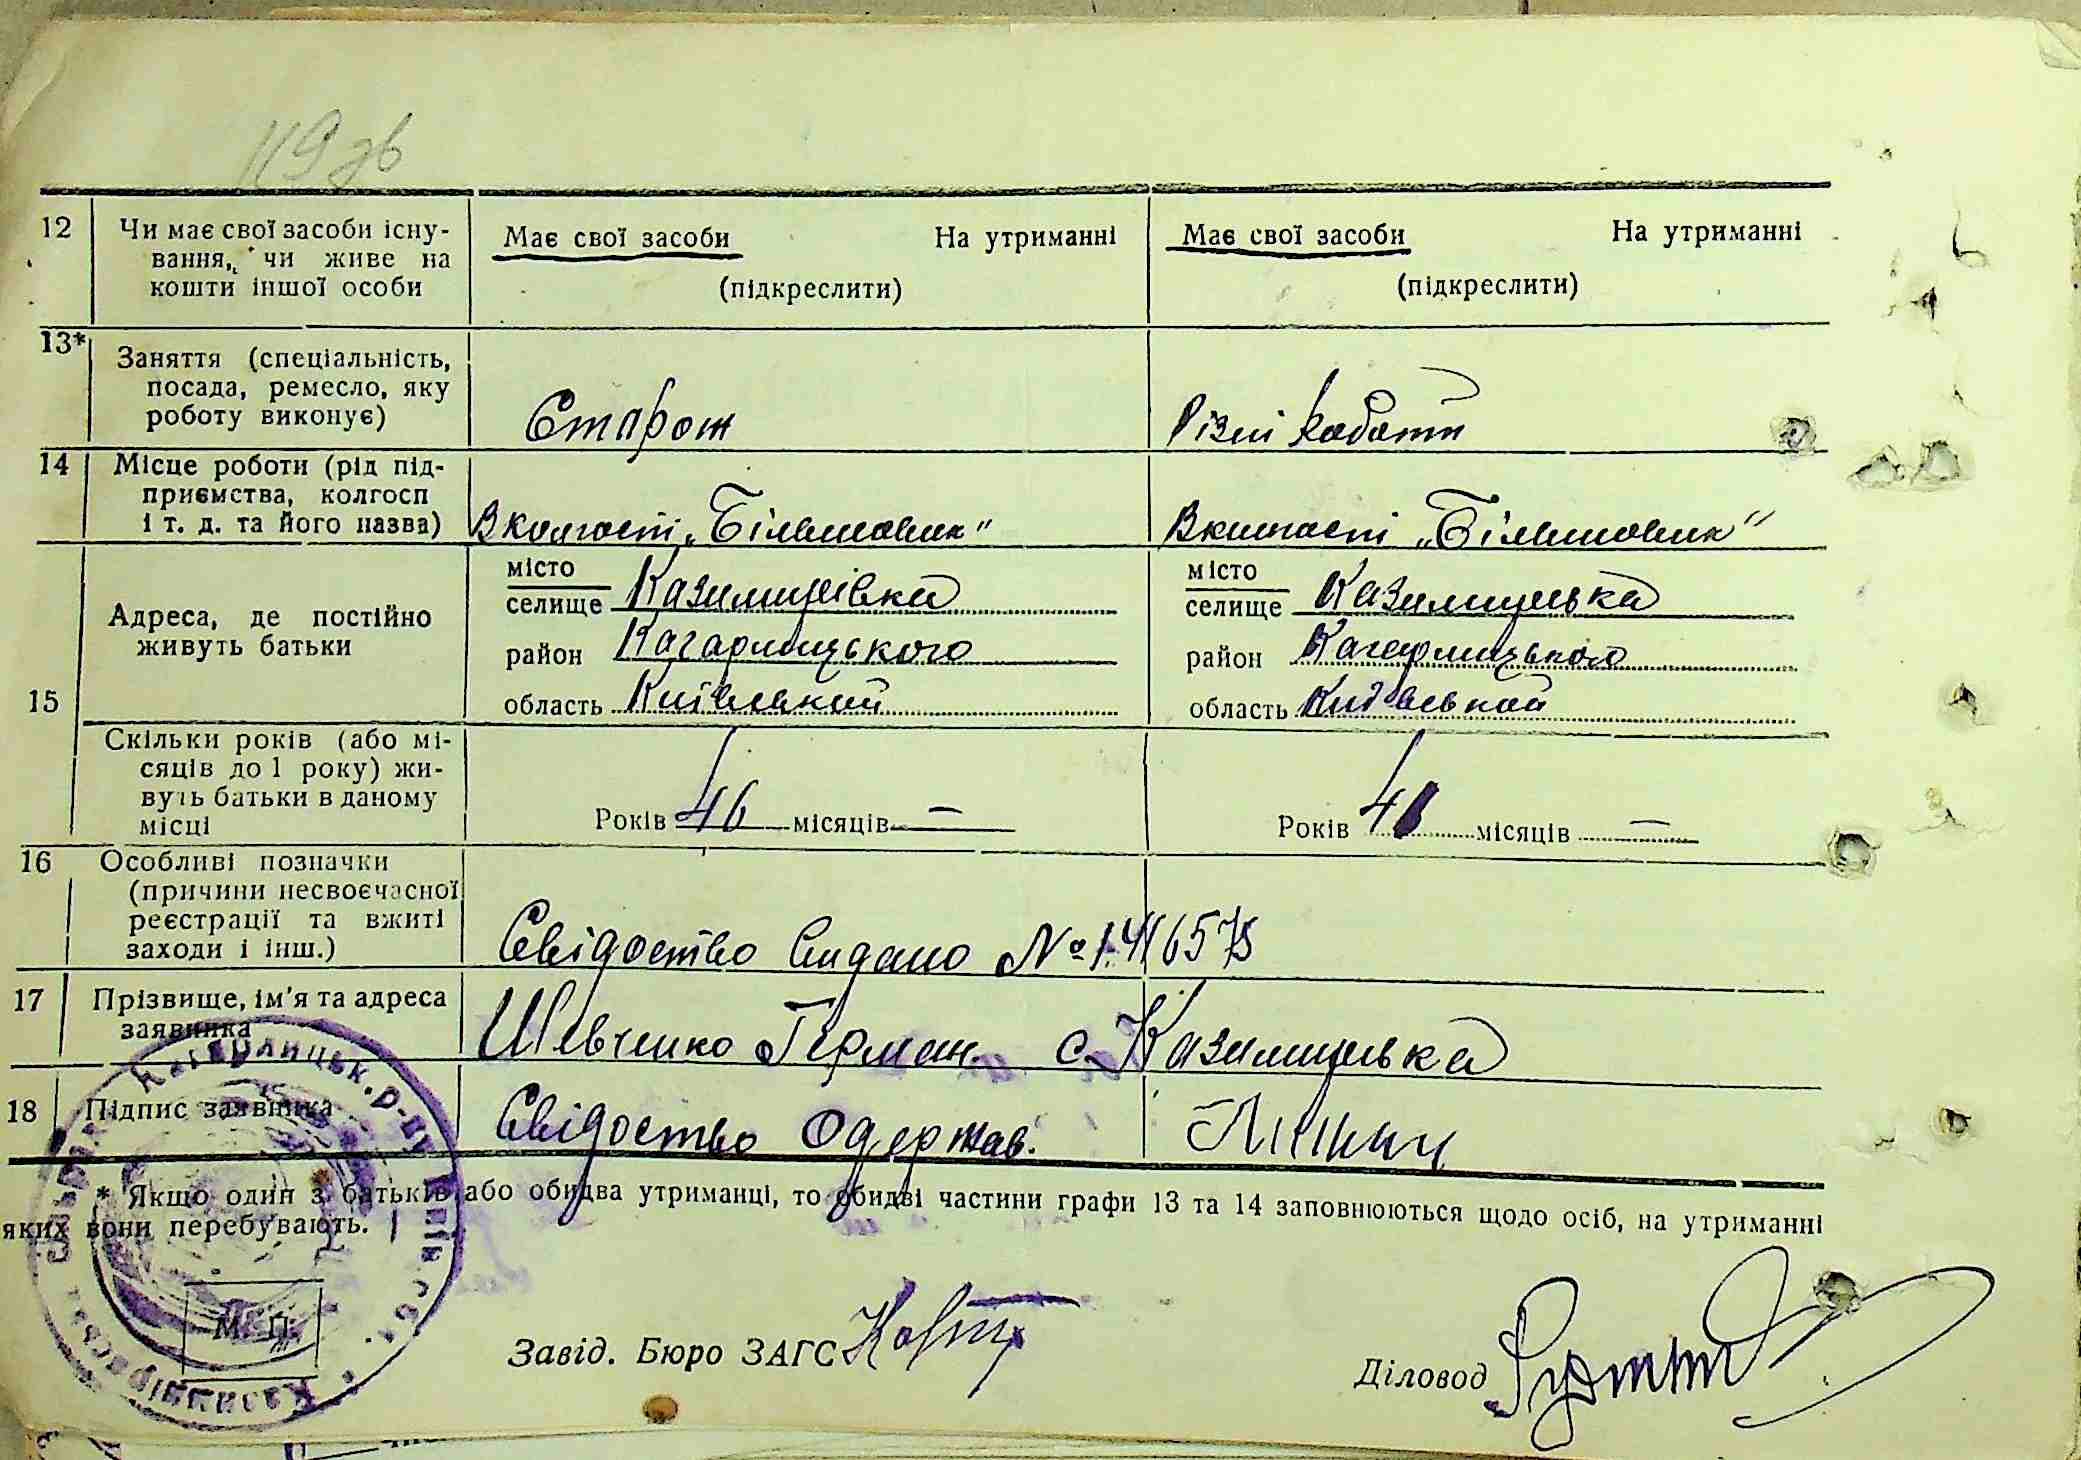 119 зв
12 Чи має свої засоби існу-
вання, чи живе на
кошти іншої особи
Має свої засоби На утриманні
(підкреслити)
Має свої засоби На утриманні
(підкреслити)
13* Заняття (спеціальність,
посада, ремесло, яку
роботу виконує)
Старож
Різні работи
14 Місце роботи (рід під-
приємства, колгосп
і т. д. та його назва)
В колгоспі „Більшовик"
В колгоспі „Більшовик"
15 Адреса, де постійно
живуть батьки
місто
селище Казимирівка
район Кагарлицького
область Київський
місто
селище Казимирівка
район Кагарлицького
область Київській
Скільки років (або мі-
сяців до 1 року) жи-
вуть батьки в даному
місці
Років 46 місяців —
Років 41 місяців —
16 Особливі позначки
(причини несвоєчасної
реєстрації та вжиті
заходи і інш.)
Свідоство видано №
17 Прізвище, ім'я та адреса
заявника
Шевченко Герман. с. Казимирівка
18 Підпис заявника
Свідоство Одержав.
* Якщо один з батьків або обидва утриманці, то обидві частини графи 13 та 14 заповнюються щодо осіб, на утриманні
яких вони перебувають.
Кагарлицьк. р-ну Київ обл.
М. П.
Завід. Бюро ЗАГС
Діловод